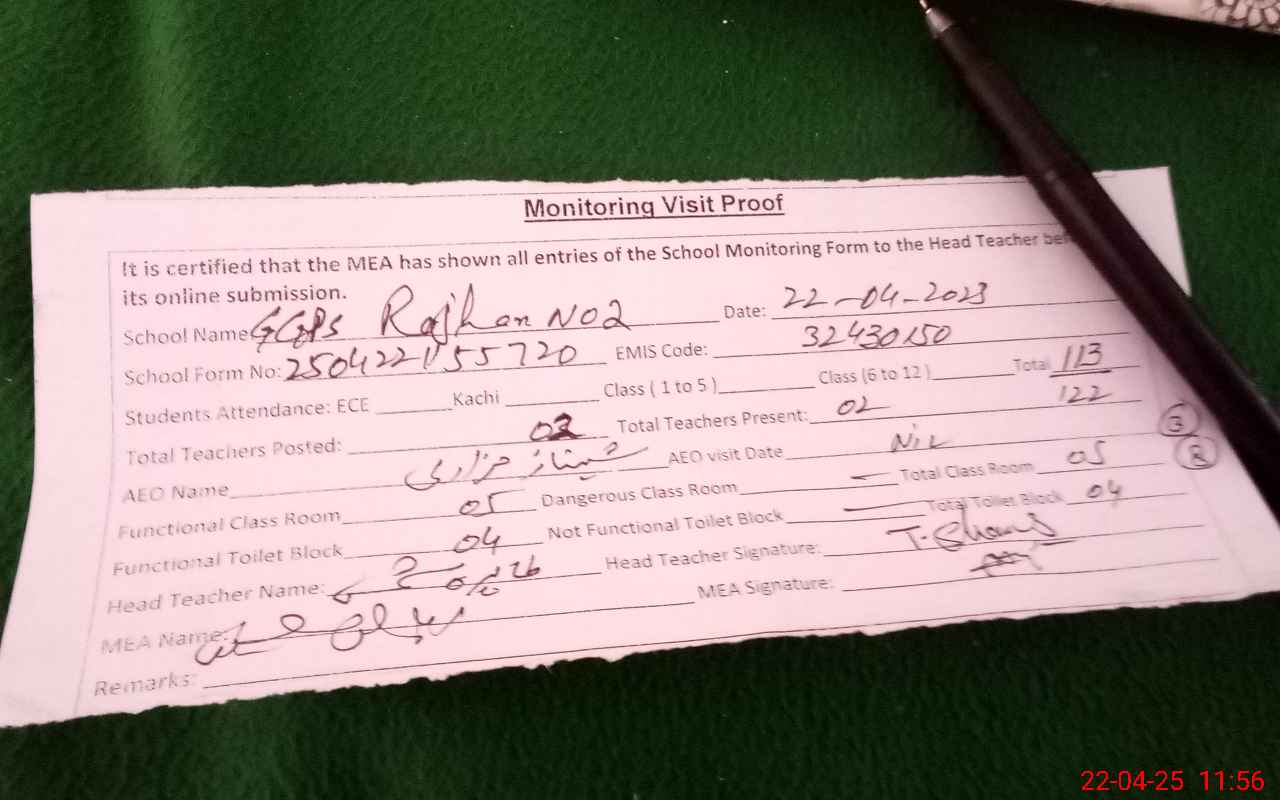 Monitoring Visit Proof
It is certified that the MEA has shown all entries of the School Monitoring Form to the Head Teacher
its online submission.
School Name GGPS Rojhan NO2 Date: 22-04-2023
School Form No: 2504221155720 EMIS Code: 32430150
Students Attendance: ECE Kachi Class ( 1 to 5 ) Class (6 to 12 ) Total 113
122
Total Teachers Posted: Total Teachers Present: 02
AEO Name شہناز مزاری AEO visit Date Nil
Functional Class Room 05 Dangerous Class Room — Total Class Room 05
Functional Toilet Block 04 Not Functional Toilet Block — Total Toilet Block 04
Head Teacher Name: Head Teacher Signature:
MEA Name: MEA Signature:
Remarks:
22-04-25 11:56